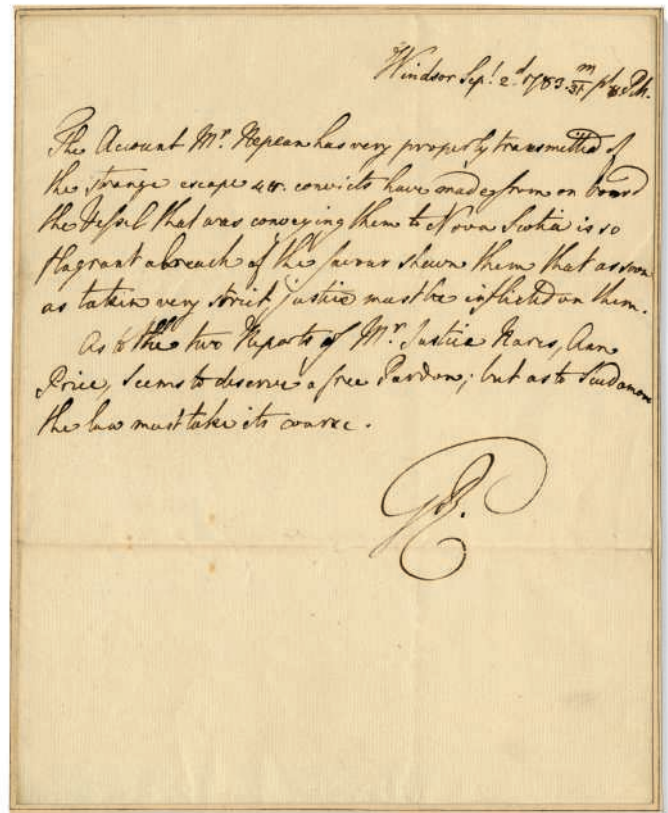 Windsor Sept. 2d. 1783. m/31 pt 8 PM.
The Account Mr. Nepean has very properly transmitted of
the strange escape 48. convicts have made from on board
the Vessel that was conveying them to Nova Scotia is so
flagrant a breach of the favour shewn them that as soon
as taken very strict justice must be inflicted on them.
As to the two Reports of Mr. Justice Nares, Ann
Price, seems to deserve a free Pardon; but as to Scudamore
the law must take its course.
GR.